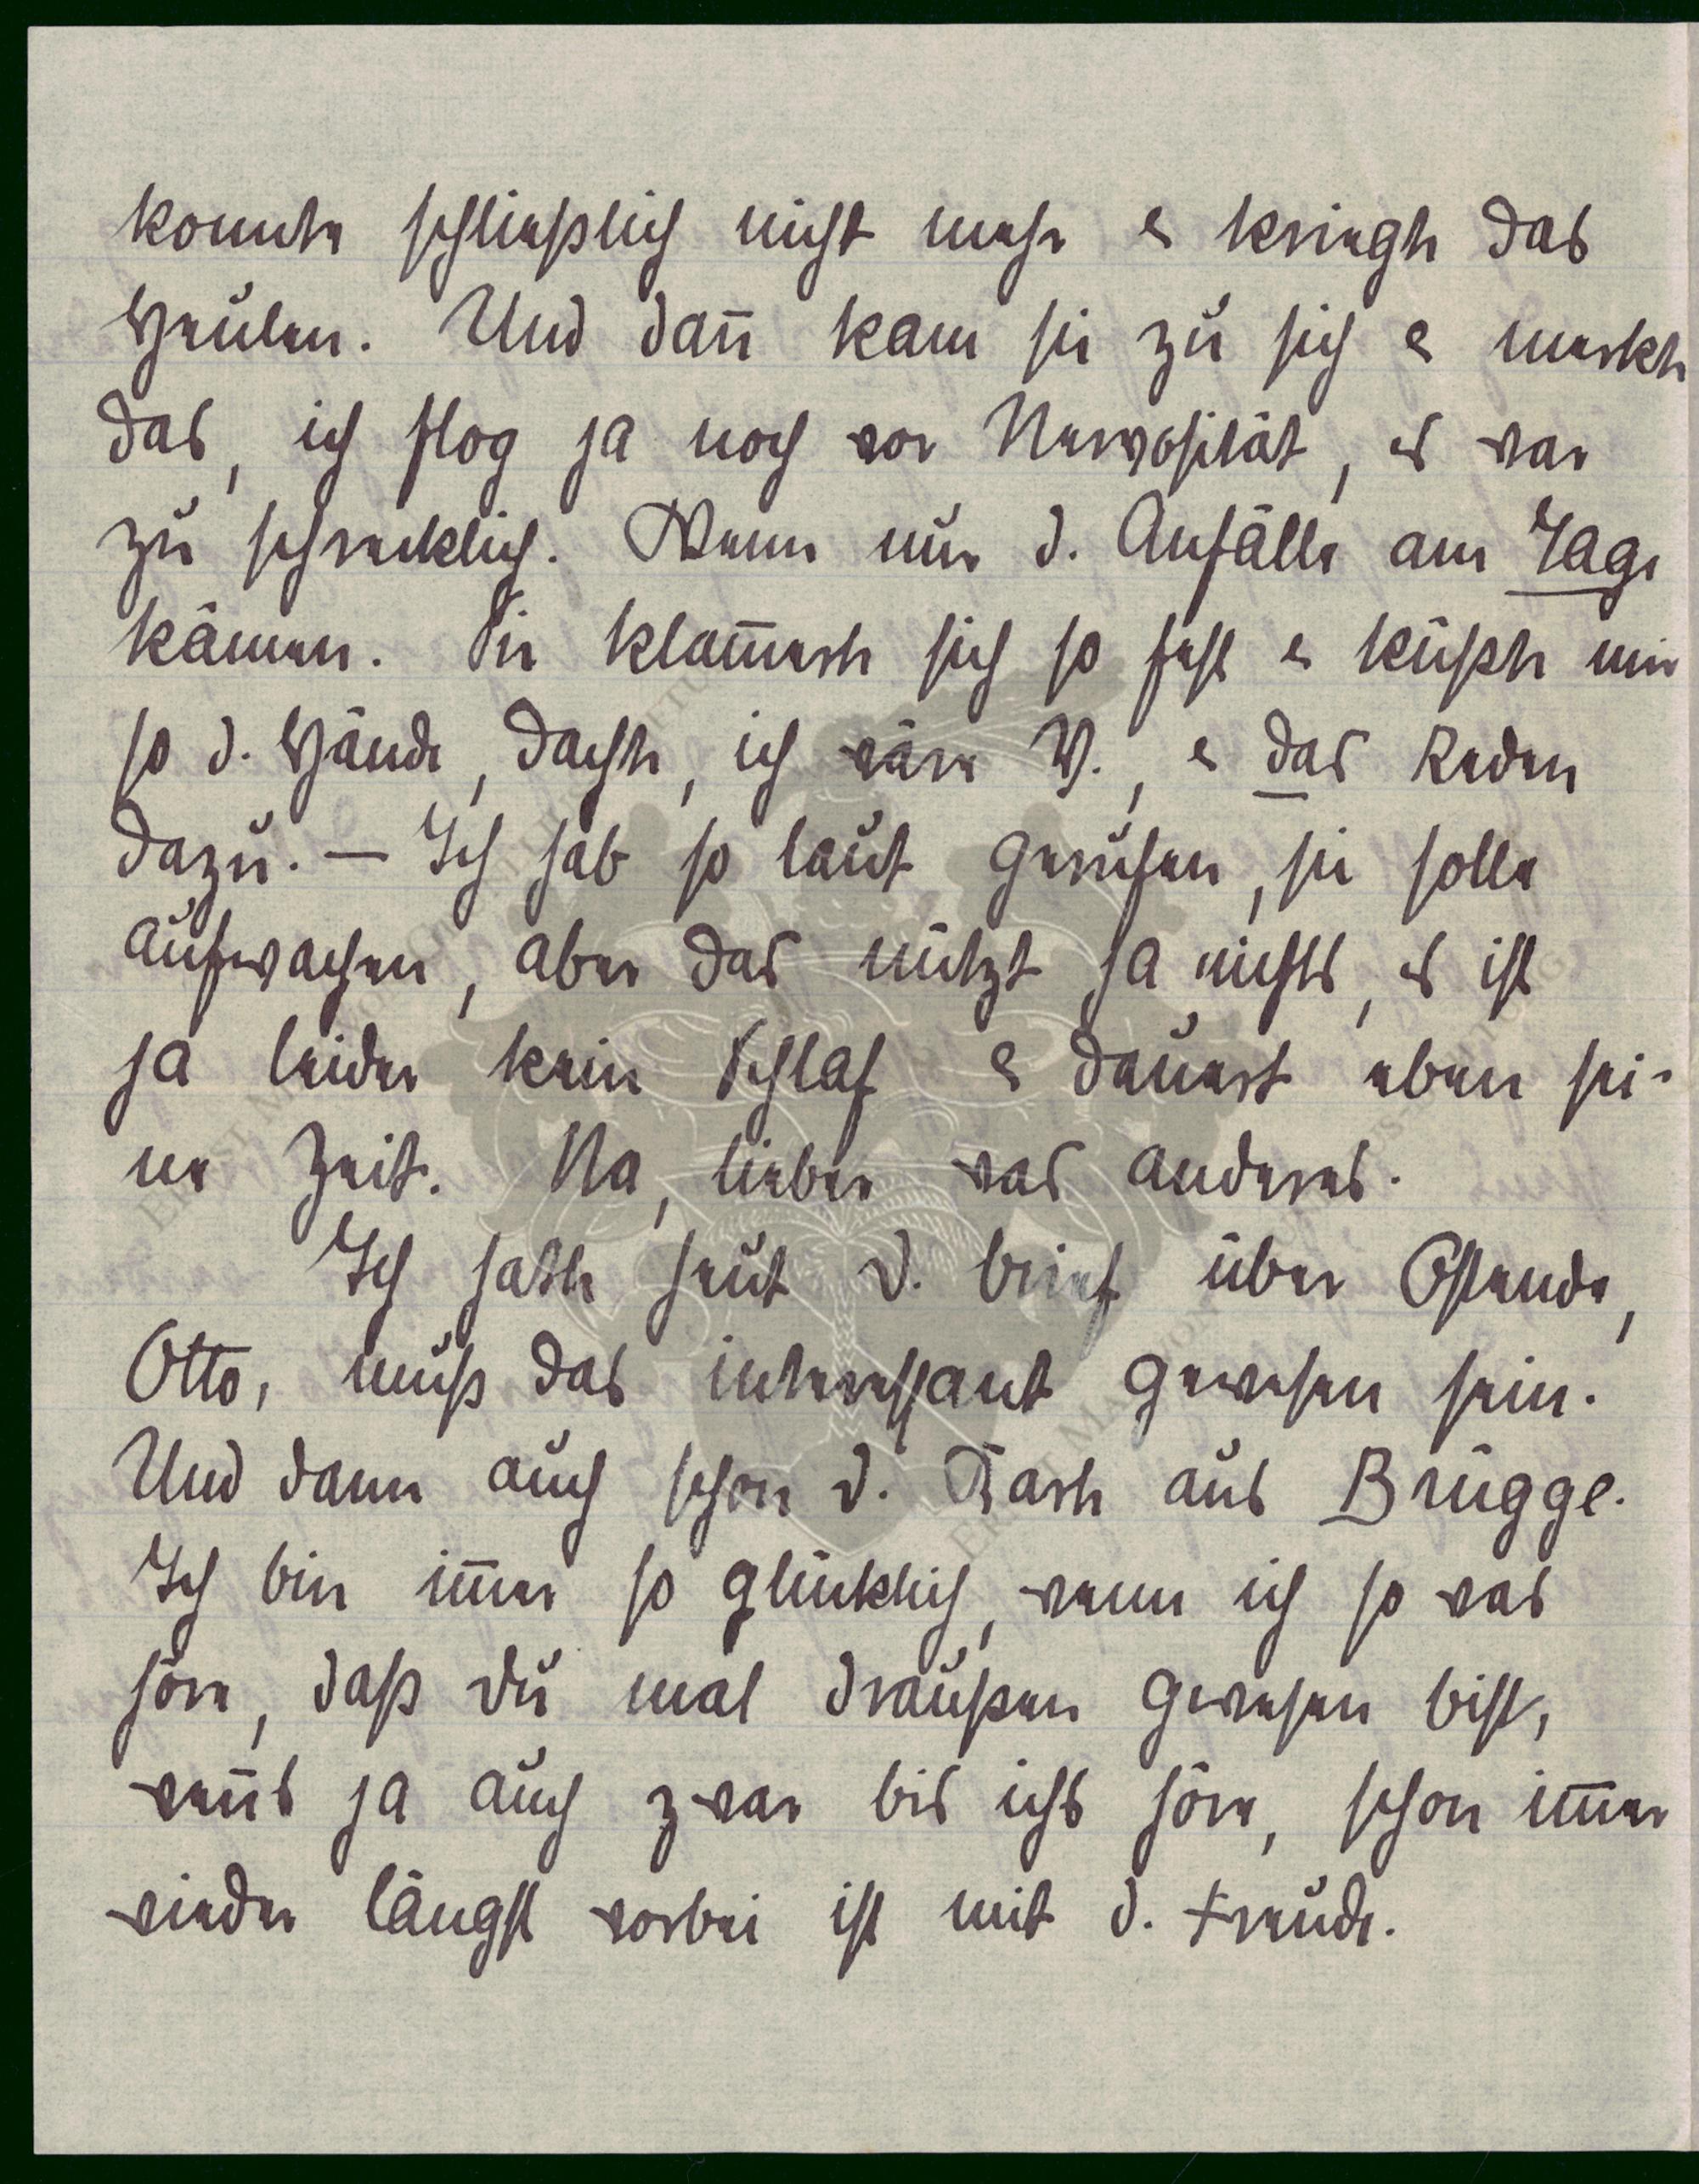 konnte schließlich nicht mehr & kriegte das
Heulen. Und dan̄ kam sie zu sich & merkte
das, ich flog ja noch vor Nervosität, es war
zu schrecklich. Wenn nur d. Anfälle am Tage
kämen. Sie klam̄erte sich so fest & küßte mir
so d. Hände, dachte, ich wäre V., & das Reden
dazu. — Ich hab so laut gerufen, sie solle
aufwachen, aber das nützt ja nichts, es ist
ja leider kein Schlaf & dauert eben sei-
ne Zeit. Na, lieber was anderes.
Ich hatte heut d. brief über Ostende,
Otto, muß das interessant gewesen sein.
Und dann auch schon d. Karte aus Brügge.
Ich bin im̄er so glücklich, wenn ich so was
höre, daß du mal draußen gewesen bist,
wen̄s ja auch zwar bis ichs höre, schon im̄er
wieder längst vorbei ist mit d. Freude.